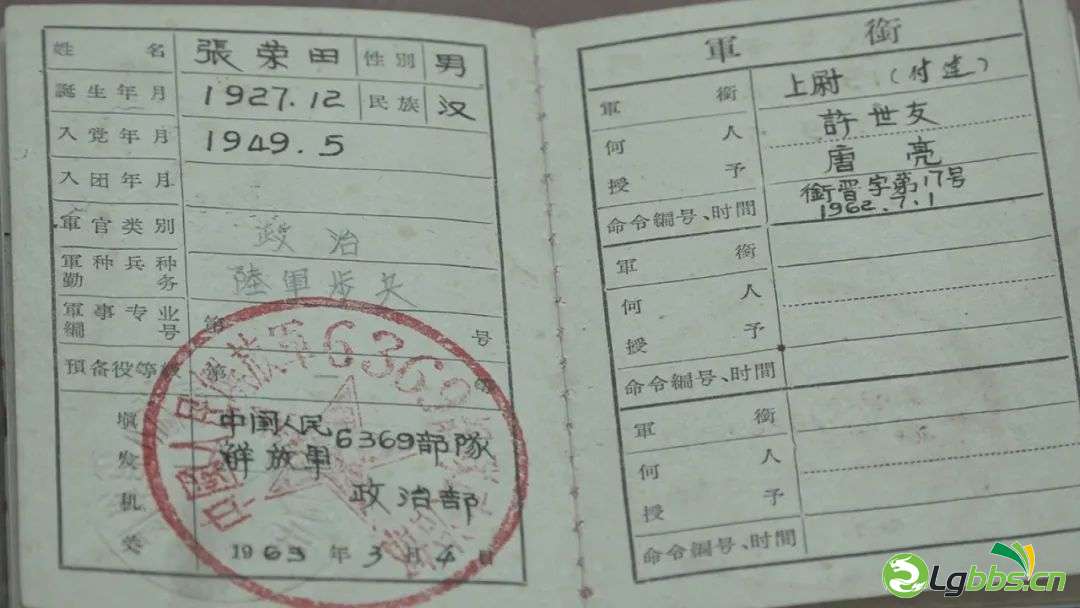 姓名 張荣田 性别 男
誕生年月 1927.12 民族 汉
入党年月 1949.5
入团年月
軍官类别 政治
軍种兵种 陸軍步兵
勤务
軍事专业 第 号
編号
預备役等級 第
填发机关 中国人民解放軍6369部隊
政治部
1963年3月4日
軍銜
軍銜 上尉（付連）
何人 許世友
授予 唐亮
命令編号、时間 銜晋字第17号
1962.7.1
軍銜
何人
授予
命令編号、时間
軍銜
何人
授予
命令編号、时間
Lgbbs.cn